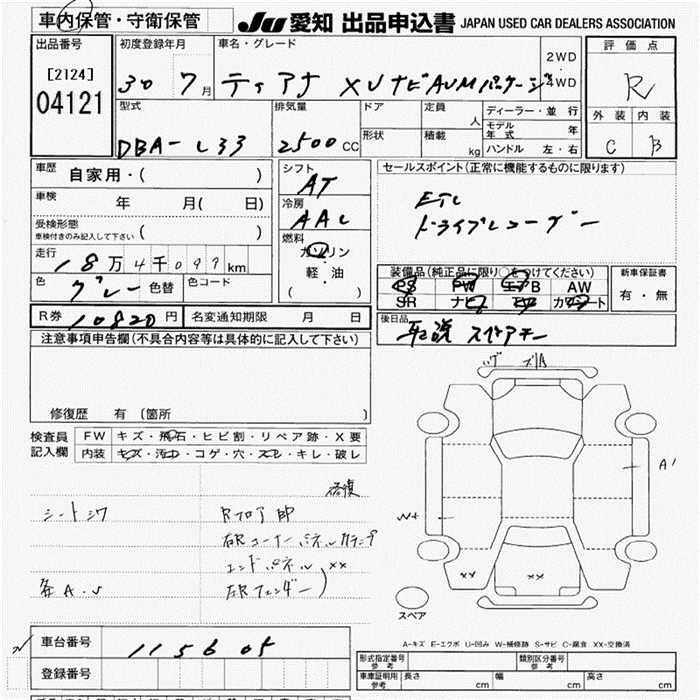 車内保管・守衛保管
JU 愛知 出品申込書 JAPAN USED CAR DEALERS ASSOCIATION
出品番号
[2124]
04121
初度登録年月
30 7月
車名・グレード
ティアナ XVナビAVMパッケージ
2WD
4WD
評価点
R
外装 内装
C B
型式
DBA-L33
排気量
2500 CC
ドア
形状
定員
人
積載
kg
ディーラー・並行
モデル年式 年
ハンドル 左・右
車歴
自家用・( )
車検
年 月( 日)
受検形態
車検付きのみ記入して下さい ( )
走行
18万4千099km
色
グレー 色替
色コード
シフト
AT
冷房
AAC
燃料
ガソリン
軽・油
( )
セールスポイント(正常に機能するものに限ります)
ETC
ドライブレコーダー
装備品(純正品に限り○をつけてください)
PS PW エアB AW
SR ナビ TV カワシート
新車保証書
有・無
後日品
取説 スペアキー
R券 10820円
名変通知期限 月 日
注意事項申告欄(不具合内容等は具体的に記入して下さい)
修復歴 有 (箇所 )
検査員
記入欄
FW キズ・飛石・ヒビ割・リペア跡・X要
内装 キズ・汚コ・コゲ・穴・スレ・キレ・破レ
修復
シートシワ
Rフロア
右Rコーナーパネル
エンドパネル XX
右Rフェンダー
各A.U
A'
W+
XX
XX
スペア
A-キズ E-エクボ U-凹み W-補修跡 S-サビ C-腐食 XX-交換済
車台番号
115605
登録番号
形式指定番号
参考
類別区分番号
参考
車庫証明用
参考
長さ cm 幅 cm 高さ cm